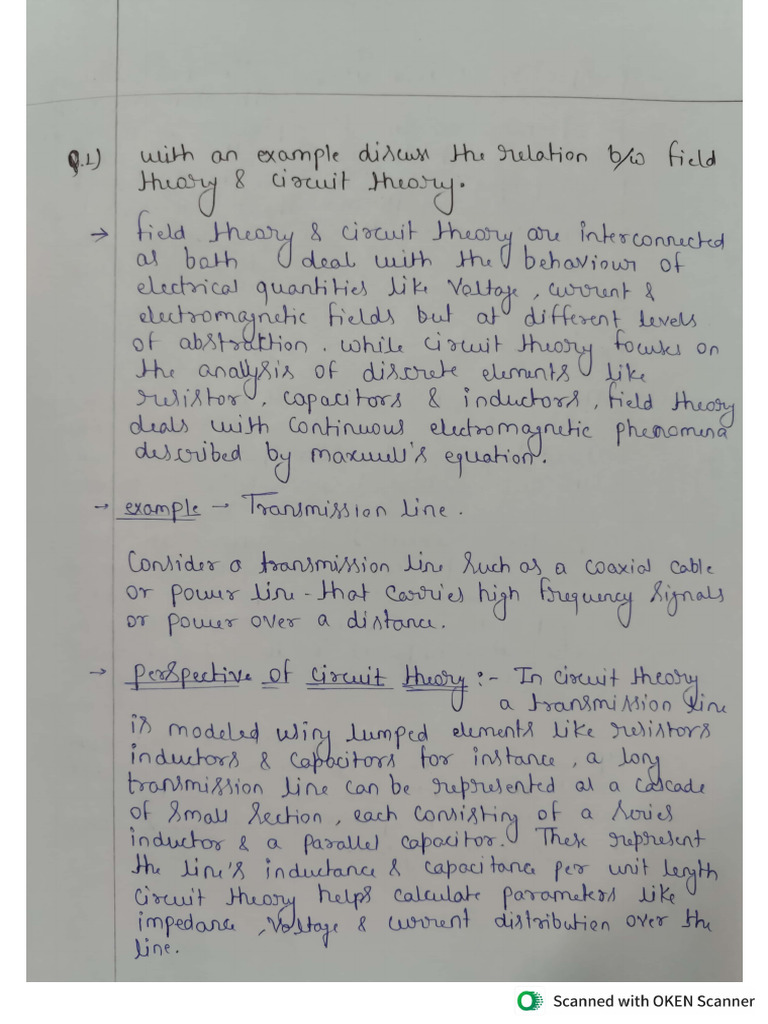 Q.1) with an example discuss the relation b/w field
theory & circuit theory.
→ field theory & circuit theory are interconnected
as both deal with the behaviour of
electrical quantities like Voltage, current &
electromagnetic fields but at different levels
of abstraktion. while circuit theory focuses on
the analysis of discrete elements like
resistor, capacitors & inductors, field theory
deals with continuous electromagnetic phenomena
described by maxwell's equation.
→ example → Transmission line.
Consider a transmission line such as a coaxial cable
or power line - that carries high frequency signals
or power over a distance.
→ perspective of circuit theory :- In circuit theory
a transmission line
is modeled using lumped elements like resistors
inductors & capacitors for instance, a long
transmission line can be represented as a cascade
of small section, each consisting of a series
inductor & a parallel capacitor. These represent
the line's inductance & capacitance per unit length
circuit theory helps calculate parameters like
impedance, Voltage & current distribution over the
line.
Scanned with OKEN Scanner